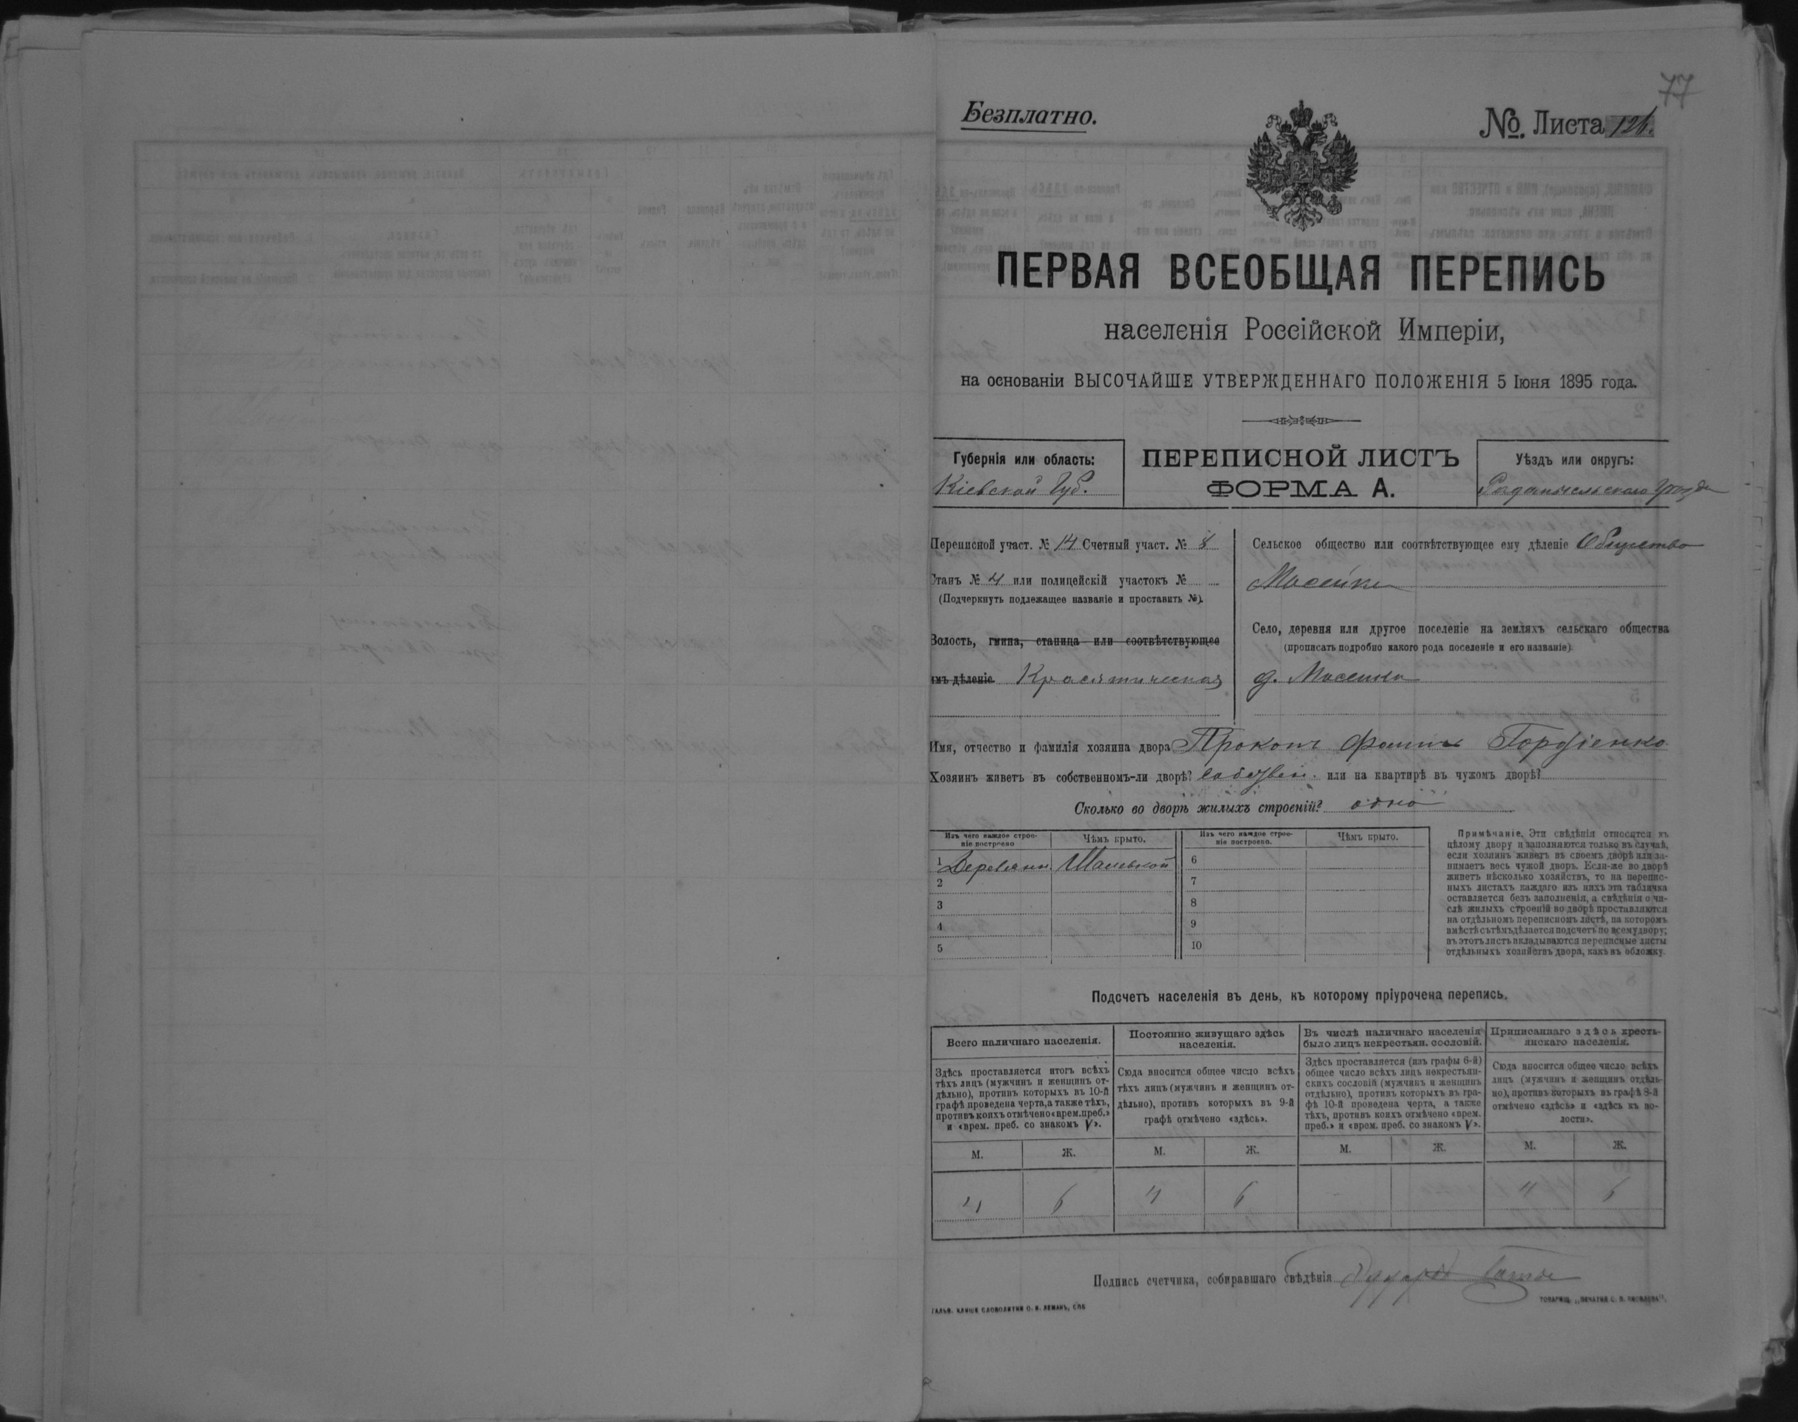 77
Безплатно.
№. Листа 126.
ПЕРВАЯ ВСЕОБЩАЯ ПЕРЕПИСЬ
населенія Россійской Имперіи,
на основаніи ВЫСОЧАЙШЕ УТВЕРЖДЕННАГО ПОЛОЖЕНІЯ 5 Іюня 1895 года.
Губернія или область:
Кіевской Губ.
ПЕРЕПИСНОЙ ЛИСТЪ
ФОРМА А.
Уѣздъ или округъ:
Радомысльскаго Уѣзда
Переписной участ. № 14 Счетный участ. № 8
Станъ № 4 или полицейскій участокъ №
(Подчеркнуть подлежащее названіе и проставить №).
Волость, гмина, станица или соотвѣтствующее
имъ дѣленіе. Красятическая
Сельское общество или соотвѣтствующее ему дѣленіе Общество
Масейки
Село, деревня или другое поселеніе на земляхъ сельскаго общества
(прописать подробно какого рода поселеніе и его названіе)
д. Масейки
Имя, отчество и фамилія хозяина двора Прокопъ Гордіенко
Хозяинъ живетъ въ собственномъ-ли дворѣ? или на квартирѣ въ чужомъ дворѣ?
Сколько во дворѣ жилыхъ строеній? одно
Изъ чего каждое строе-
ніе построено
Чѣмъ крыто.
Изъ чего каждое строе-
ніе построено.
Чѣмъ крыто.
1 Деревянн.
6
2
7
3
8
4
9
5
10
Примѣчаніе. Эти свѣдѣнія относятся къ
цѣлому двору и заполняются только въ случаѣ,
если хозяинъ живетъ въ своемъ дворѣ или за-
нимаетъ весь чужой дворъ. Если-же во дворѣ
живетъ нѣсколько хозяйствъ, то на перепис-
ныхъ листахъ каждаго изъ нихъ эта табличка
оставляется безъ заполненія, а свѣдѣнія о чи-
слѣ жилыхъ строеній во дворѣ проставляются
на отдѣльномъ переписномъ листѣ, на которомъ
вмѣстѣ съ тѣмъ дѣлается подсчетъ по всему двору;
въ этотъ листъ вкладываются переписные листы
отдѣльныхъ хозяйствъ двора, какъ въ обложку.
Подсчетъ населенія въ день, къ которому пріурочена перепись.
Всего наличнаго населенія.
Постоянно живущаго здѣсь
населенія.
Въ числѣ наличнаго населенія
было лицъ некрестьян. сословій.
Приписаннаго здѣсь кресть-
янскаго населенія.
Здѣсь проставляется итогъ всѣхъ
тѣхъ лицъ (мужчинъ и женщинъ от-
дѣльно), противъ которыхъ въ 10-й
графѣ проведена черта, а также тѣхъ,
противъ коихъ отмѣчено «врем. преб.»
и «врем. преб. со знакомъ V».
Сюда вносится общее число всѣхъ
тѣхъ лицъ (мужчинъ и женщинъ от-
дѣльно), противъ которыхъ въ 9-й
графѣ отмѣчено «здѣсь».
Здѣсь проставляется (изъ графы 6-й)
общее число всѣхъ лицъ некрестьян-
скихъ сословій (мужчинъ и женщинъ
отдѣльно), противъ которыхъ въ гра-
фѣ 10-й проведена черта, а также
тѣхъ, противъ коихъ отмѣчено «врем.
преб.» и «врем. преб. со знакомъ V».
Сюда вносится общее число всѣхъ
лицъ (мужчинъ и женщинъ отдѣль-
но), противъ которыхъ въ графѣ 8-й
отмѣчено «здѣсь» и «здѣсь въ во-
лости».
М. Ж. М. Ж. М. Ж. М. Ж.
4 6 4 6 4 6
Подпись счетчика, собиравшаго свѣдѣнія